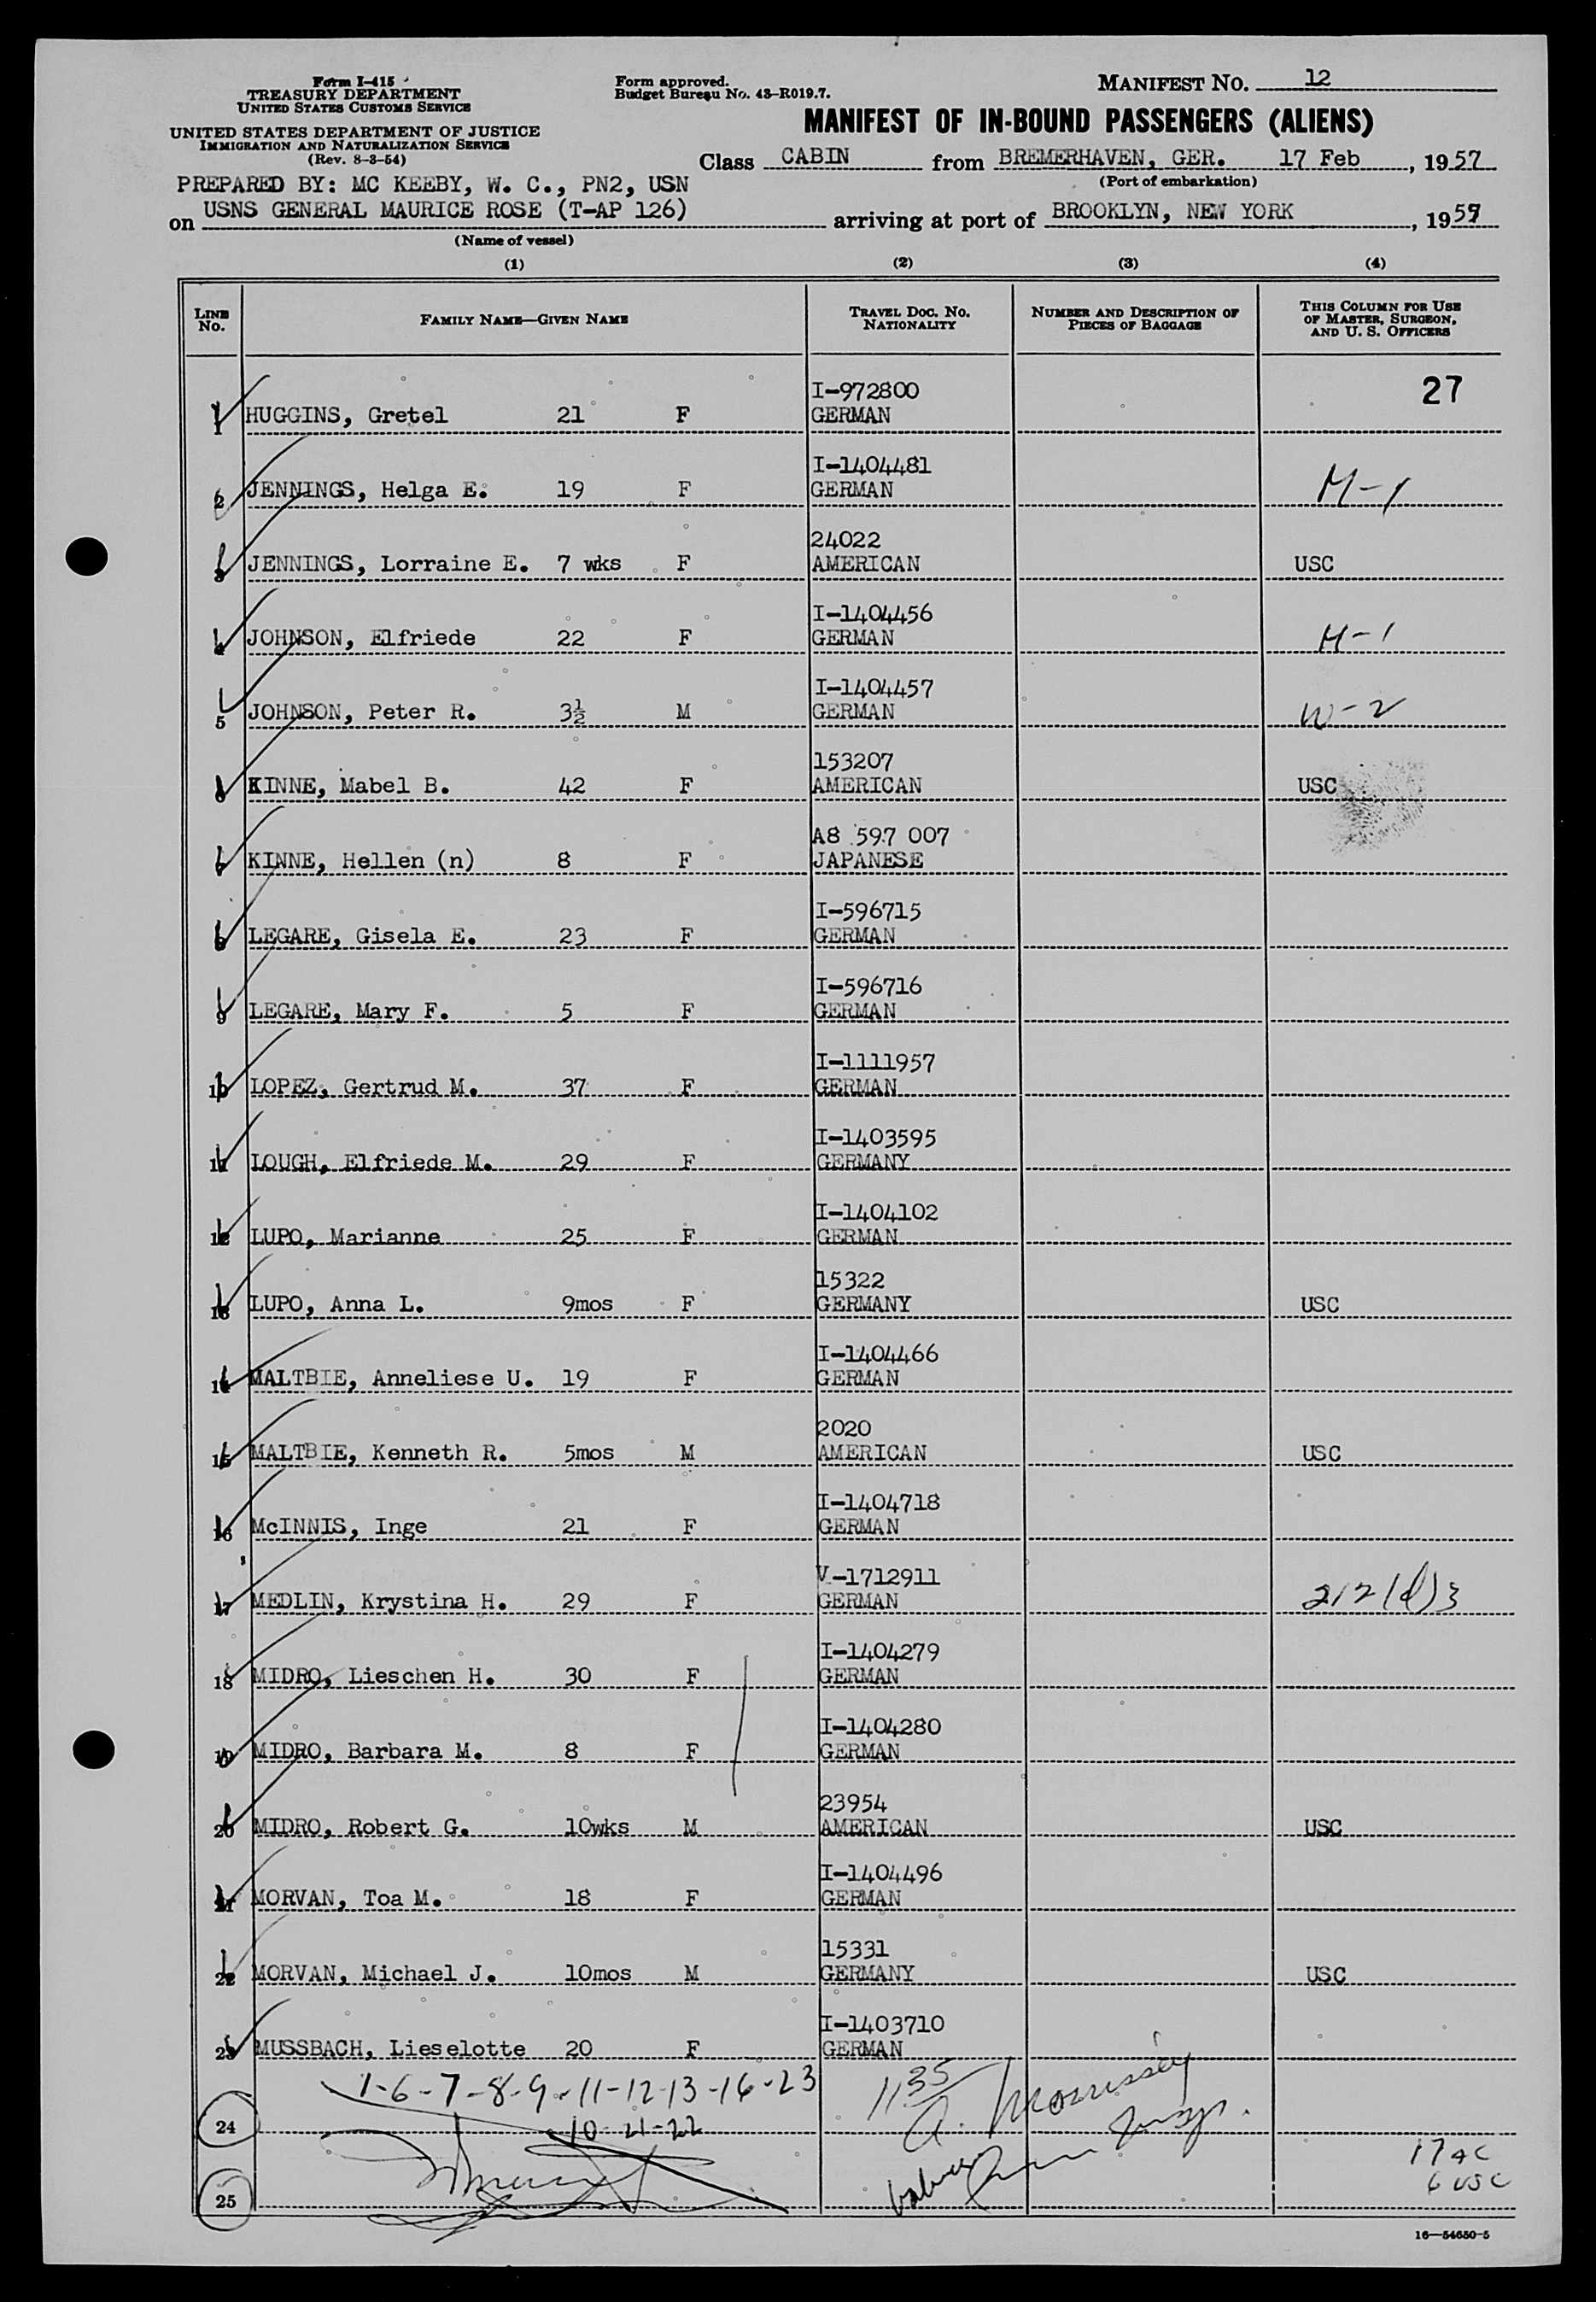 Form I-415
TREASURY DEPARTMENT
UNITED STATES CUSTOMS SERVICE
UNITED STATES DEPARTMENT OF JUSTICE
IMMIGRATION AND NATURALIZATION SERVICE
(Rev. 8-3-54)
Form approved.
Budget Bureau No. 43-R019.7.
MANIFEST NO. 12
MANIFEST OF IN-BOUND PASSENGERS (ALIENS)
Class CABIN from BREMERHAVEN, GER. 17 Feb, 1957
(Port of embarkation)
PREPARED BY: MC KEEBY, W. C., PN2, USN
on USNS GENERAL MAURICE ROSE (T-AP 126) arriving at port of BROOKLYN, NEW YORK, 1957
(Name of vessel)
(1) (2) (3) (4)
LINE No. FAMILY NAME—GIVEN NAME TRAVEL DOC. NO. NATIONALITY NUMBER AND DESCRIPTION OF PIECES OF BAGGAGE THIS COLUMN FOR USE OF MASTER, SURGEON, AND U. S. OFFICERS
I-972800 27
1 HUGGINS, Gretel 21 F GERMAN
I-1404481
2 JENNINGS, Helga E. 19 F GERMAN M-1
24022
3 JENNINGS, Lorraine E. 7 wks F AMERICAN USC
I-1404456
4 JOHNSON, Elfriede 22 F GERMAN M-1
I-1404457
5 JOHNSON, Peter R. 3½ M GERMAN W-2
153207
6 KINNE, Mabel B. 42 F AMERICAN USC
A8 597 007
7 KINNE, Hellen (n) 8 F JAPANESE
I-596715
8 LEGARE, Gisela E. 23 F GERMAN
I-596716
9 LEGARE, Mary F. 5 F GERMAN
I-1111957
10 LOPEZ, Gertrud M. 37 F GERMAN
I-1403595
11 LOUGH, Elfriede M. 29 F GERMANY
I-1404102
12 LUPO, Marianne 25 F GERMAN
15322
13 LUPO, Anna L. 9mos F GERMANY USC
I-1404466
14 MALTBIE, Anneliese U. 19 F GERMAN
2020
15 MALTBIE, Kenneth R. 5mos M AMERICAN USC
I-1404718
16 McINNIS, Inge 21 F GERMAN
V-1712911
17 MEDLIN, Krystina H. 29 F GERMAN 212(d)3
I-1404279
18 MIDRO, Lieschen H. 30 F GERMAN
I-1404280
19 MIDRO, Barbara M. 8 F GERMAN
23954
20 MIDRO, Robert G. 10wks M AMERICAN USC
I-1404496
21 MORVAN, Toa M. 18 F GERMAN
15331
22 MORVAN, Michael J. 10mos M GERMANY USC
I-1403710
23 MUSSBACH, Lieselotte 20 F GERMAN
1-6-7-8-9-11-12-13-16-23 1135 A. Morrissey
24 10-21-22 Insp.
17 AC
6 USC
25
16—54650-5